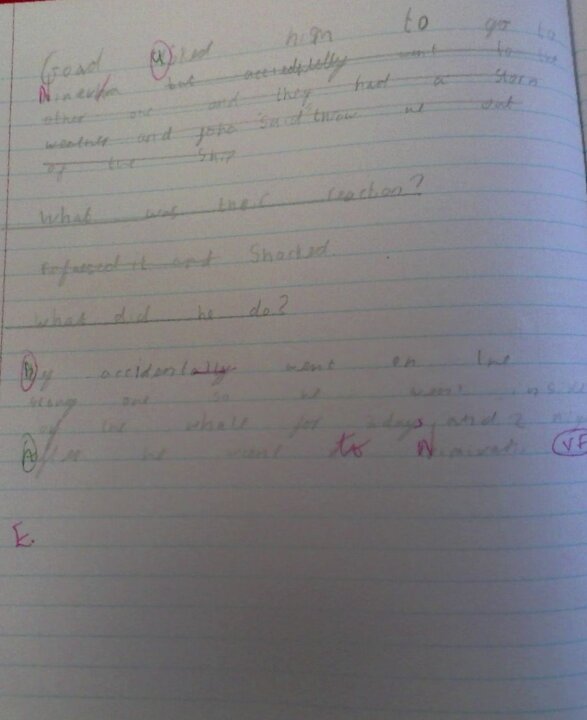 Goad asked him to go to
Ninevha but accidentally went to the
other one and they had a storm
weather and joha said throw me out
of the Ship
What was their reaction?
refuesed it and Shocked.
What did he do?
By accidentally went on the
wrong one so he went inside
of the whale for 2 days and 2
After he went to N
VF
E.